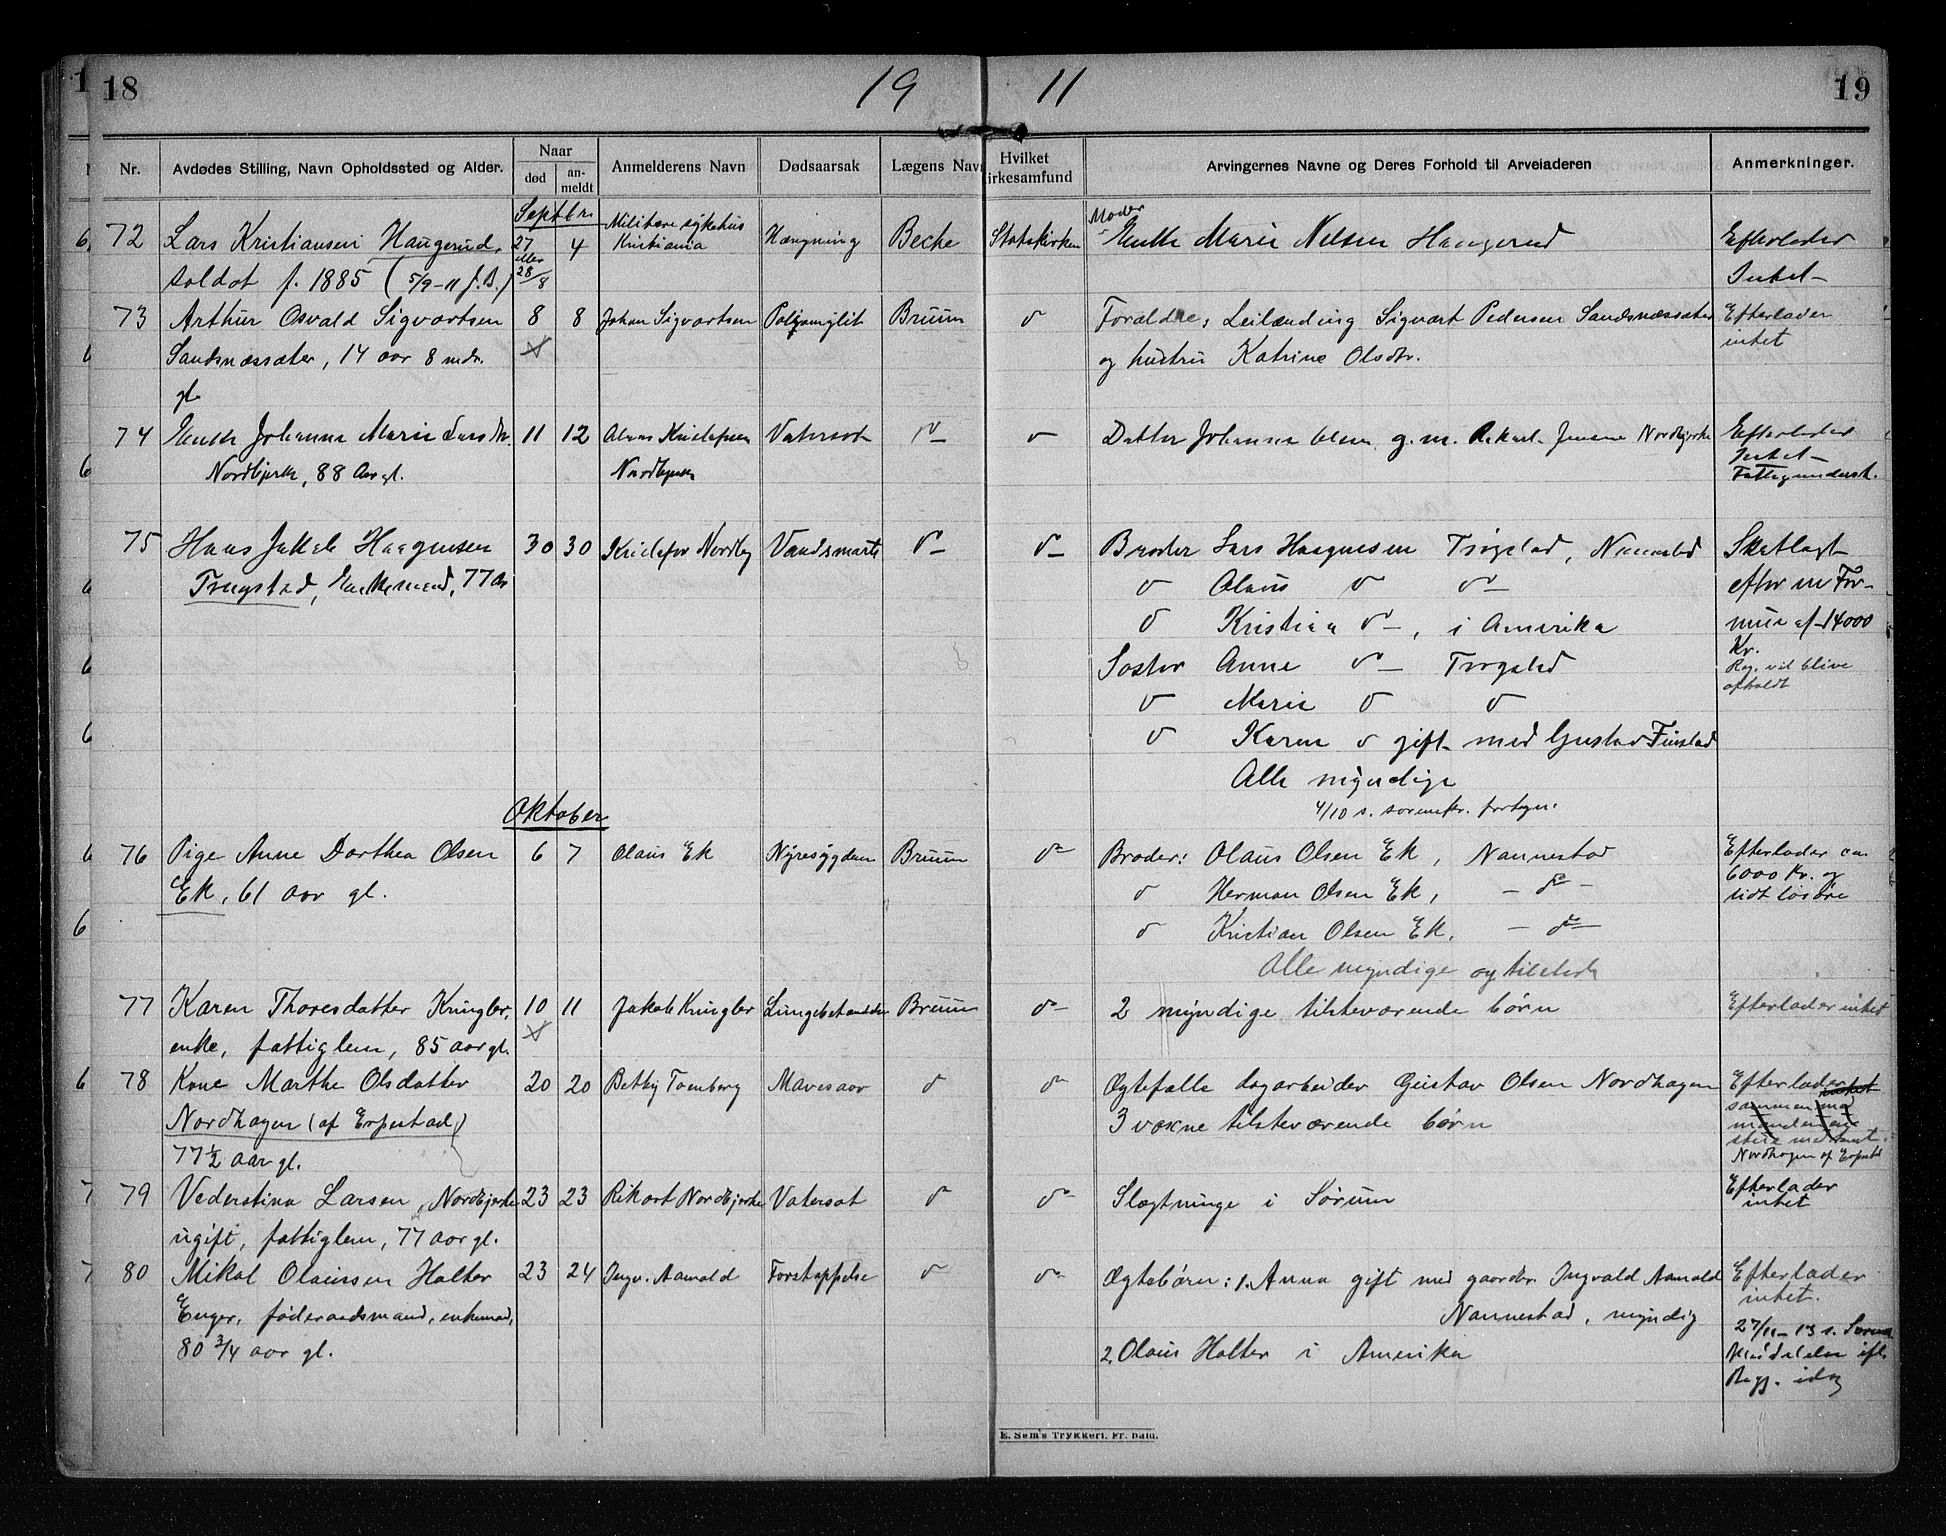 18
19
11
19
Nr.
Avdødes Stilling, Navn Opholdssted og Alder.
Naar
død
an-
meldt
Anmelderens Navn
Dødsaarsak
Lægens Nav
Hvilket
irkesamfund
Arvingernes Navne og Deres Forhold til Arveladeren
Anmerkninger.
Septbr
72 Lars Kristiansen Haugerud, 27 4 Militære sykehus Hængning Beche Statskirken Moder Enke Marie Nelsen Haugerud Efterlader
eller Kristiania
soldat f. 1885 (5/9-11 J.B.) 28/8 Intet
73 Arthur Osvald Sigvartsen 8 8 Johan Sigvartsen Bruun Forældre, Leilænding Sigvart Pedersen Sandsnæssæter Efterlader
Sandsnæssæter, 14 aar 8 mdr. og hustru Katrine Olsdtr. intet
gl.
74 Enke Johanne Marie Larsdtr. 11 12 Olaus Kristofsen Vatersot Datter Johanne Olsen g. m. Rikart Jensen Nordbjerke Efterlader
Nordbjerke, 88 Aar gl. Nordbjerke Intet
Fattigunderst.
75 Hans Jakob Haagensen 30 30 Kristofer Nordby Vandsmarte Broder Lars Haagensen Trøgstad, Nannestad Skatlagt
Trøgstad, Enkemand, 77 Aar Olaus efter en For-
Kristian , i Amerika mue af 14000
Søster Anne Trøgstad Kr.
Marie Reg. vil blive
afholdt
Karen gift med Gustav Finstad
Alle myndige
4/10 s. sorenskr. fortegn.
Oktober
76 Pige Anne Dorthea Olsen 6 7 Olaus Ek Nyresygdom Bruun Broder: Olaus Olsen Ek, Nannestad Efterlader ca.
Ek, 61 aar gl. Herman Olsen Ek, 6000 Kr. og
Kristian Olsen Ek, lidt løsøre
Alle myndige og tilstede
77 Karen Thoresdatter Kringler, 10 11 Jakob Kringler Lungebetændelse Bruun 2 myndige tilsteværende børn Efterlader intet
enke, fattiglem, 85 aar gl.
78 Kone Marthe Olsdatter 20 20 Betty Tomberg Mavesaar Ægtefælle dagarbeider Gustav Olsen Nordhagen Efterlader intet
Nordhagen (af Erpestad) 3 voxne tilsteværende børn sammen med
77½ aar gl. manden en
Nordhagen af Erpestd
79 Vederstina Larsen, Nordbjerke 23 23 Rikart Nordbjerke Vatersot Slægtninge i Sørum Efterlader
ugift, fattiglem, 77 aar gl. intet
80 Mikal Olaussen Holter 23 24 Ingv. Aamold Forstoppelse Ægtebørn: 1. Anna gift med gaardbr. Ingvald Aamold Efterlader
Enger, føderaadsmand, enkemand, Nannestad, myndig intet.
80 3/4 aar gl. 2. Olaus Holter i Amerika 27/11-13 s.
E. Sem's Trykkeri, Fr. hald.